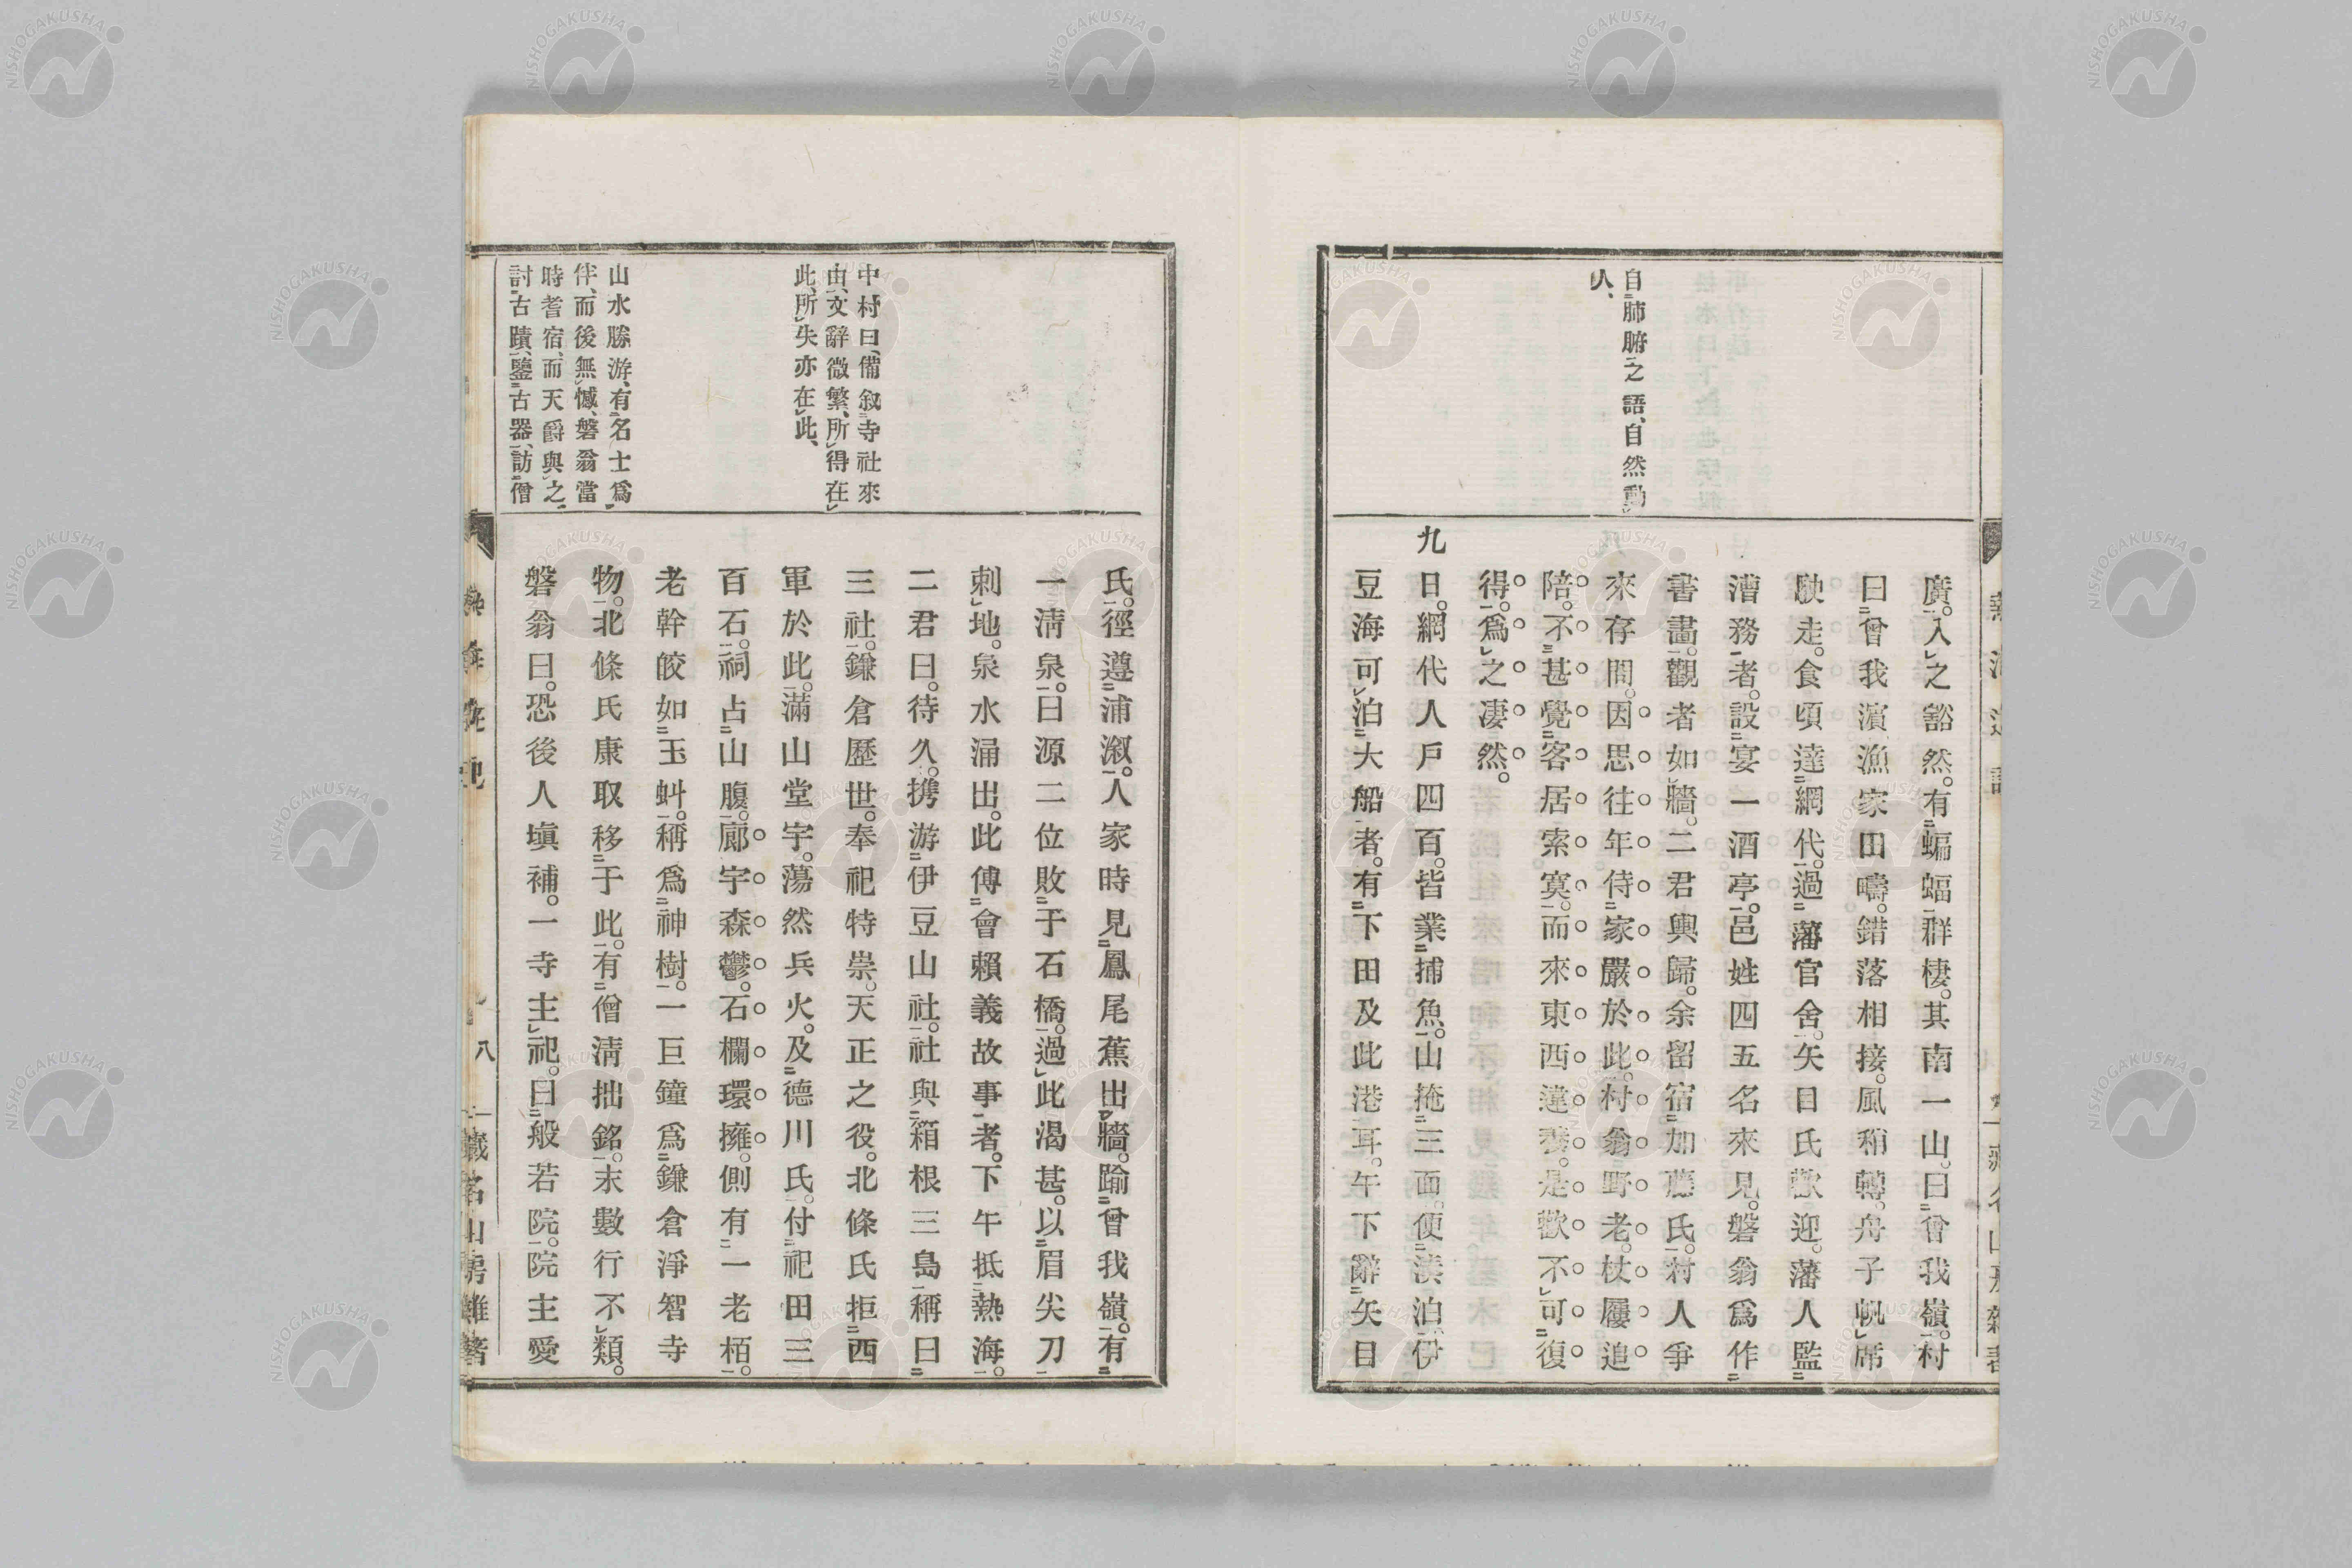 自肺腑之語、自然動
人、
廣。入之豁然。有蝙蝠群棲。其南一山。曰曾我嶺。村
曰曾我濱。漁家田疇。錯落相接。風稍轉。舟子帆席
駛走。食頃達網代。過藩官舍。矢目氏歡迎。藩人監
漕務者。設宴一酒亭。邑姓四五名來見。磐翁爲作
書畫。觀者如牆。二君輿歸。余留宿加藤氏。村人爭
來存問。因思往年侍家嚴於此。村翁野老。杖屨追
陪。不甚覺客居索寞。而來東西違。是歡不可復
得。爲之凄然。
九日。網代人戶四百。皆業捕魚。山掩三面。便湊泊。伊
豆海可泊大船者。有下田及此港耳。午下辭矢目
中村曰、備叙寺社來
由、文辭微繁、所得在
此、所失亦在此、
山水勝游、有名士爲
伴、而後無憾、磐翁當
時耆宿、而天爵與之、
討古蹟、鑒古器、訪僧
氏。徑遵浦溆。人家時見鳳尾蕉出牆。踰曾我嶺。有
一淸泉。曰源二位敗于石橋。過此渴甚。以眉尖刀
刺地。泉水涌出。此傅會賴義故事者。下午抵熱海。
二君曰。待久。携游伊豆山社。社與箱根三島稱曰
三社。鎌倉歷世。奉祀特崇。天正之役。北條氏拒西
軍於此。滿山堂宇。蕩然兵火。及德川氏。付祀田三
百石。祠占山腹。廊宇森鬱。石欄環擁。側有一老栢。
老幹皎如玉虯。稱爲神樹。一巨鐘爲鎌倉淨智寺
物。北條氏康取移于此。有僧淸拙銘。末數行不類。
磐翁曰。恐後人塡補。一寺主祀。曰般若院。院主愛
八